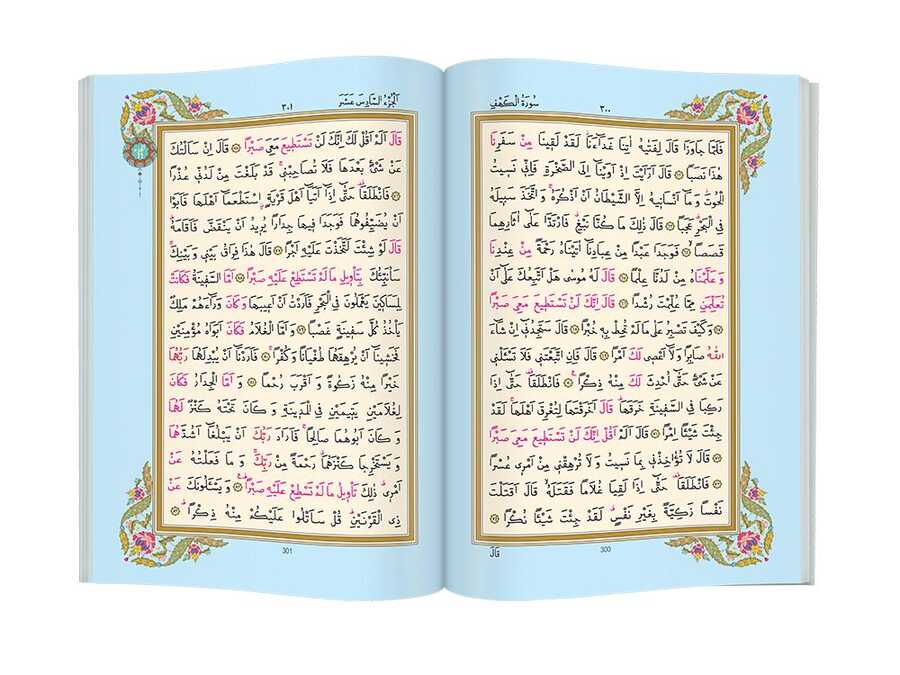 سُورَةُ الْكَهْفِ ٣٠٠
فَلَمَّا جَاوَزَا قَالَ لِفَتٰيهُ اٰتِنَا غَدَٓاءَنَاۘ لَقَدْ لَقٖينَا مِنْ سَفَرِنَا
هٰذَا نَصَبًا ﴿٦٢﴾ قَالَ اَرَاَيْتَ اِذْ اَوَيْنَٓا اِلَى الصَّخْرَةِ فَاِنّٖي نَسٖيتُ
الْحُوتَؗ وَمَٓا اَنْسَانٖيهُ اِلَّا الشَّيْطَانُ اَنْ اَذْكُرَهُۚ وَاتَّخَذَ سَبٖيلَهُ
فِي الْبَحْرِۗ عَجَبًا ﴿٦٣﴾ قَالَ ذٰلِكَ مَا كُنَّا نَبْغِۗ فَارْتَدَّا عَلٰٓى اٰثَارِهِمَا
قَصَصًاۙ ﴿٦٤﴾ فَوَجَدَا عَبْدًا مِنْ عِبَادِنَٓا اٰتَيْنَاهُ رَحْمَةً مِنْ عِنْدِنَا
وَعَلَّمْنَاهُ مِنْ لَدُنَّا عِلْمًا ﴿٦٥﴾ قَالَ لَهُ مُوسٰى هَلْ اَتَّبِعُكَ عَلٰٓى اَنْ
تُعَلِّمَنِ مِمَّا عُلِّمْتَ رُشْدًا ﴿٦٦﴾ قَالَ اِنَّكَ لَنْ تَسْتَطٖيعَ مَعِيَ صَبْرًا
﴿٦٧﴾ وَكَيْفَ تَصْبِرُ عَلٰى مَا لَمْ تُحِطْ بِهٖ خُبْرًا ﴿٦٨﴾ قَالَ سَتَجِدُنٖٓي اِنْ شَٓاءَ
اللّٰهُ صَابِرًا وَلَٓا اَعْصٖي لَكَ اَمْرًا ﴿٦٩﴾ قَالَ فَاِنِ اتَّبَعْتَنٖي فَلَا تَسْـَٔلْنٖي
عَنْ شَيْءٍ حَتّٰٓى اُحْدِثَ لَكَ مِنْهُ ذِكْرًا۟ ﴿٧٠﴾ فَانْطَلَقَا۠ حَتّٰٓى اِذَا
رَكِبَا فِي السَّفٖينَةِ خَرَقَهَاۜ قَالَ اَخَرَقْتَهَا لِتُغْرِقَ اَهْلَهَاۚ لَقَدْ
جِئْتَ شَيْـًٔا اِمْرًا ﴿٧١﴾ قَالَ اَلَمْ اَقُلْ اِنَّكَ لَنْ تَسْتَطٖيعَ مَعِيَ صَبْرًا
﴿٧٢﴾ قَالَ لَا تُؤَاخِذْنٖي بِمَا نَسٖيتُ وَلَا تُرْهِقْنٖي مِنْ اَمْرٖي عُسْرًا
﴿٧٣﴾ فَانْطَلَقَا۠ حَتّٰٓى اِذَا لَقِيَا غُلَامًا فَقَتَلَهُۙ قَالَ اَقَتَلْتَ
نَفْسًا زَكِيَّةً بِغَيْرِ نَفْسٍۜ لَقَدْ جِئْتَ شَيْـًٔا نُكْرًا ﴿٧٤﴾
قَالَ
300
اَلْجُزْءُ السَّادِسَ عَشَرَ ٣٠١
قَالَ اَلَمْ اَقُلْ لَكَ اِنَّكَ لَنْ تَسْتَطٖيعَ مَعِيَ صَبْرًا ﴿٧٥﴾ قَالَ اِنْ سَاَلْتُكَ
عَنْ شَيْءٍ بَعْدَهَا فَلَا تُصَاحِبْنٖيۚ قَدْ بَلَغْتَ مِنْ لَدُنّٖي عُذْرًا
﴿٧٦﴾ فَانْطَلَقَا۠ حَتّٰٓى اِذَٓا اَتَيَٓا اَهْلَ قَرْيَةٍۨ اسْتَطْعَمَٓا اَهْلَهَا فَاَبَوْا
اَنْ يُضَيِّفُوهُمَا فَوَجَدَا فٖيهَا جِدَارًا يُرٖيدُ اَنْ يَنْقَضَّ فَاَقَامَهُۜ
قَالَ لَوْ شِئْتَ لَتَّخَذْتَ عَلَيْهِ اَجْرًا ﴿٧٧﴾ قَالَ هٰذَا فِرَاقُ بَيْنٖي وَبَيْنِكَۚ
سَاُنَبِّئُكَ بِتَأْوٖيلِ مَا لَمْ تَسْتَطِعْ عَلَيْهِ صَبْرًا ﴿٧٨﴾ اَمَّا السَّفٖينَةُ فَكَانَتْ
لِمَسَاكٖينَ يَعْمَلُونَ فِي الْبَحْرِ فَاَرَدْتُ اَنْ اَعٖيبَهَا وَكَانَ وَرَٓاءَهُمْ مَلِكٌ
يَأْخُذُ كُلَّ سَفٖينَةٍ غَصْبًا ﴿٧٩﴾ وَاَمَّا الْغُلَامُ فَكَانَ اَبَوَاهُ مُؤْمِنَيْنِ
فَخَشٖينَٓا اَنْ يُرْهِقَهُمَا طُغْيَانًا وَكُفْرًاۚ ﴿٨٠﴾ فَاَرَدْنَٓا اَنْ يُبْدِلَهُمَا رَبُّهُمَا
خَيْرًا مِنْهُ زَكٰوةً وَاَقْرَبَ رُحْمًا ﴿٨١﴾ وَاَمَّا الْجِدَارُ فَكَانَ
لِغُلَامَيْنِ يَتٖيمَيْنِ فِي الْمَدٖينَةِ وَكَانَ تَحْتَهُ كَنْزٌ لَهُمَا
وَكَانَ اَبُوهُمَا صَالِحًاۚ فَاَرَادَ رَبُّكَ اَنْ يَبْلُغَٓا اَشُدَّهُمَا
وَيَسْتَخْرِجَا كَنْزَهُمَاۗ رَحْمَةً مِنْ رَبِّكَۚ وَمَا فَعَلْتُهُ عَنْ
اَمْرٖيۜ ذٰلِكَ تَأْوٖيلُ مَا لَمْ تَسْطِعْ عَلَيْهِ صَبْرًاۜ ﴿٨٢﴾ وَيَسْـَٔلُونَكَ عَنْ
ذِي الْقَرْنَيْنِۜ قُلْ سَاَتْلُوا عَلَيْكُمْ مِنْهُ ذِكْرًاۜ ﴿٨٣﴾
301